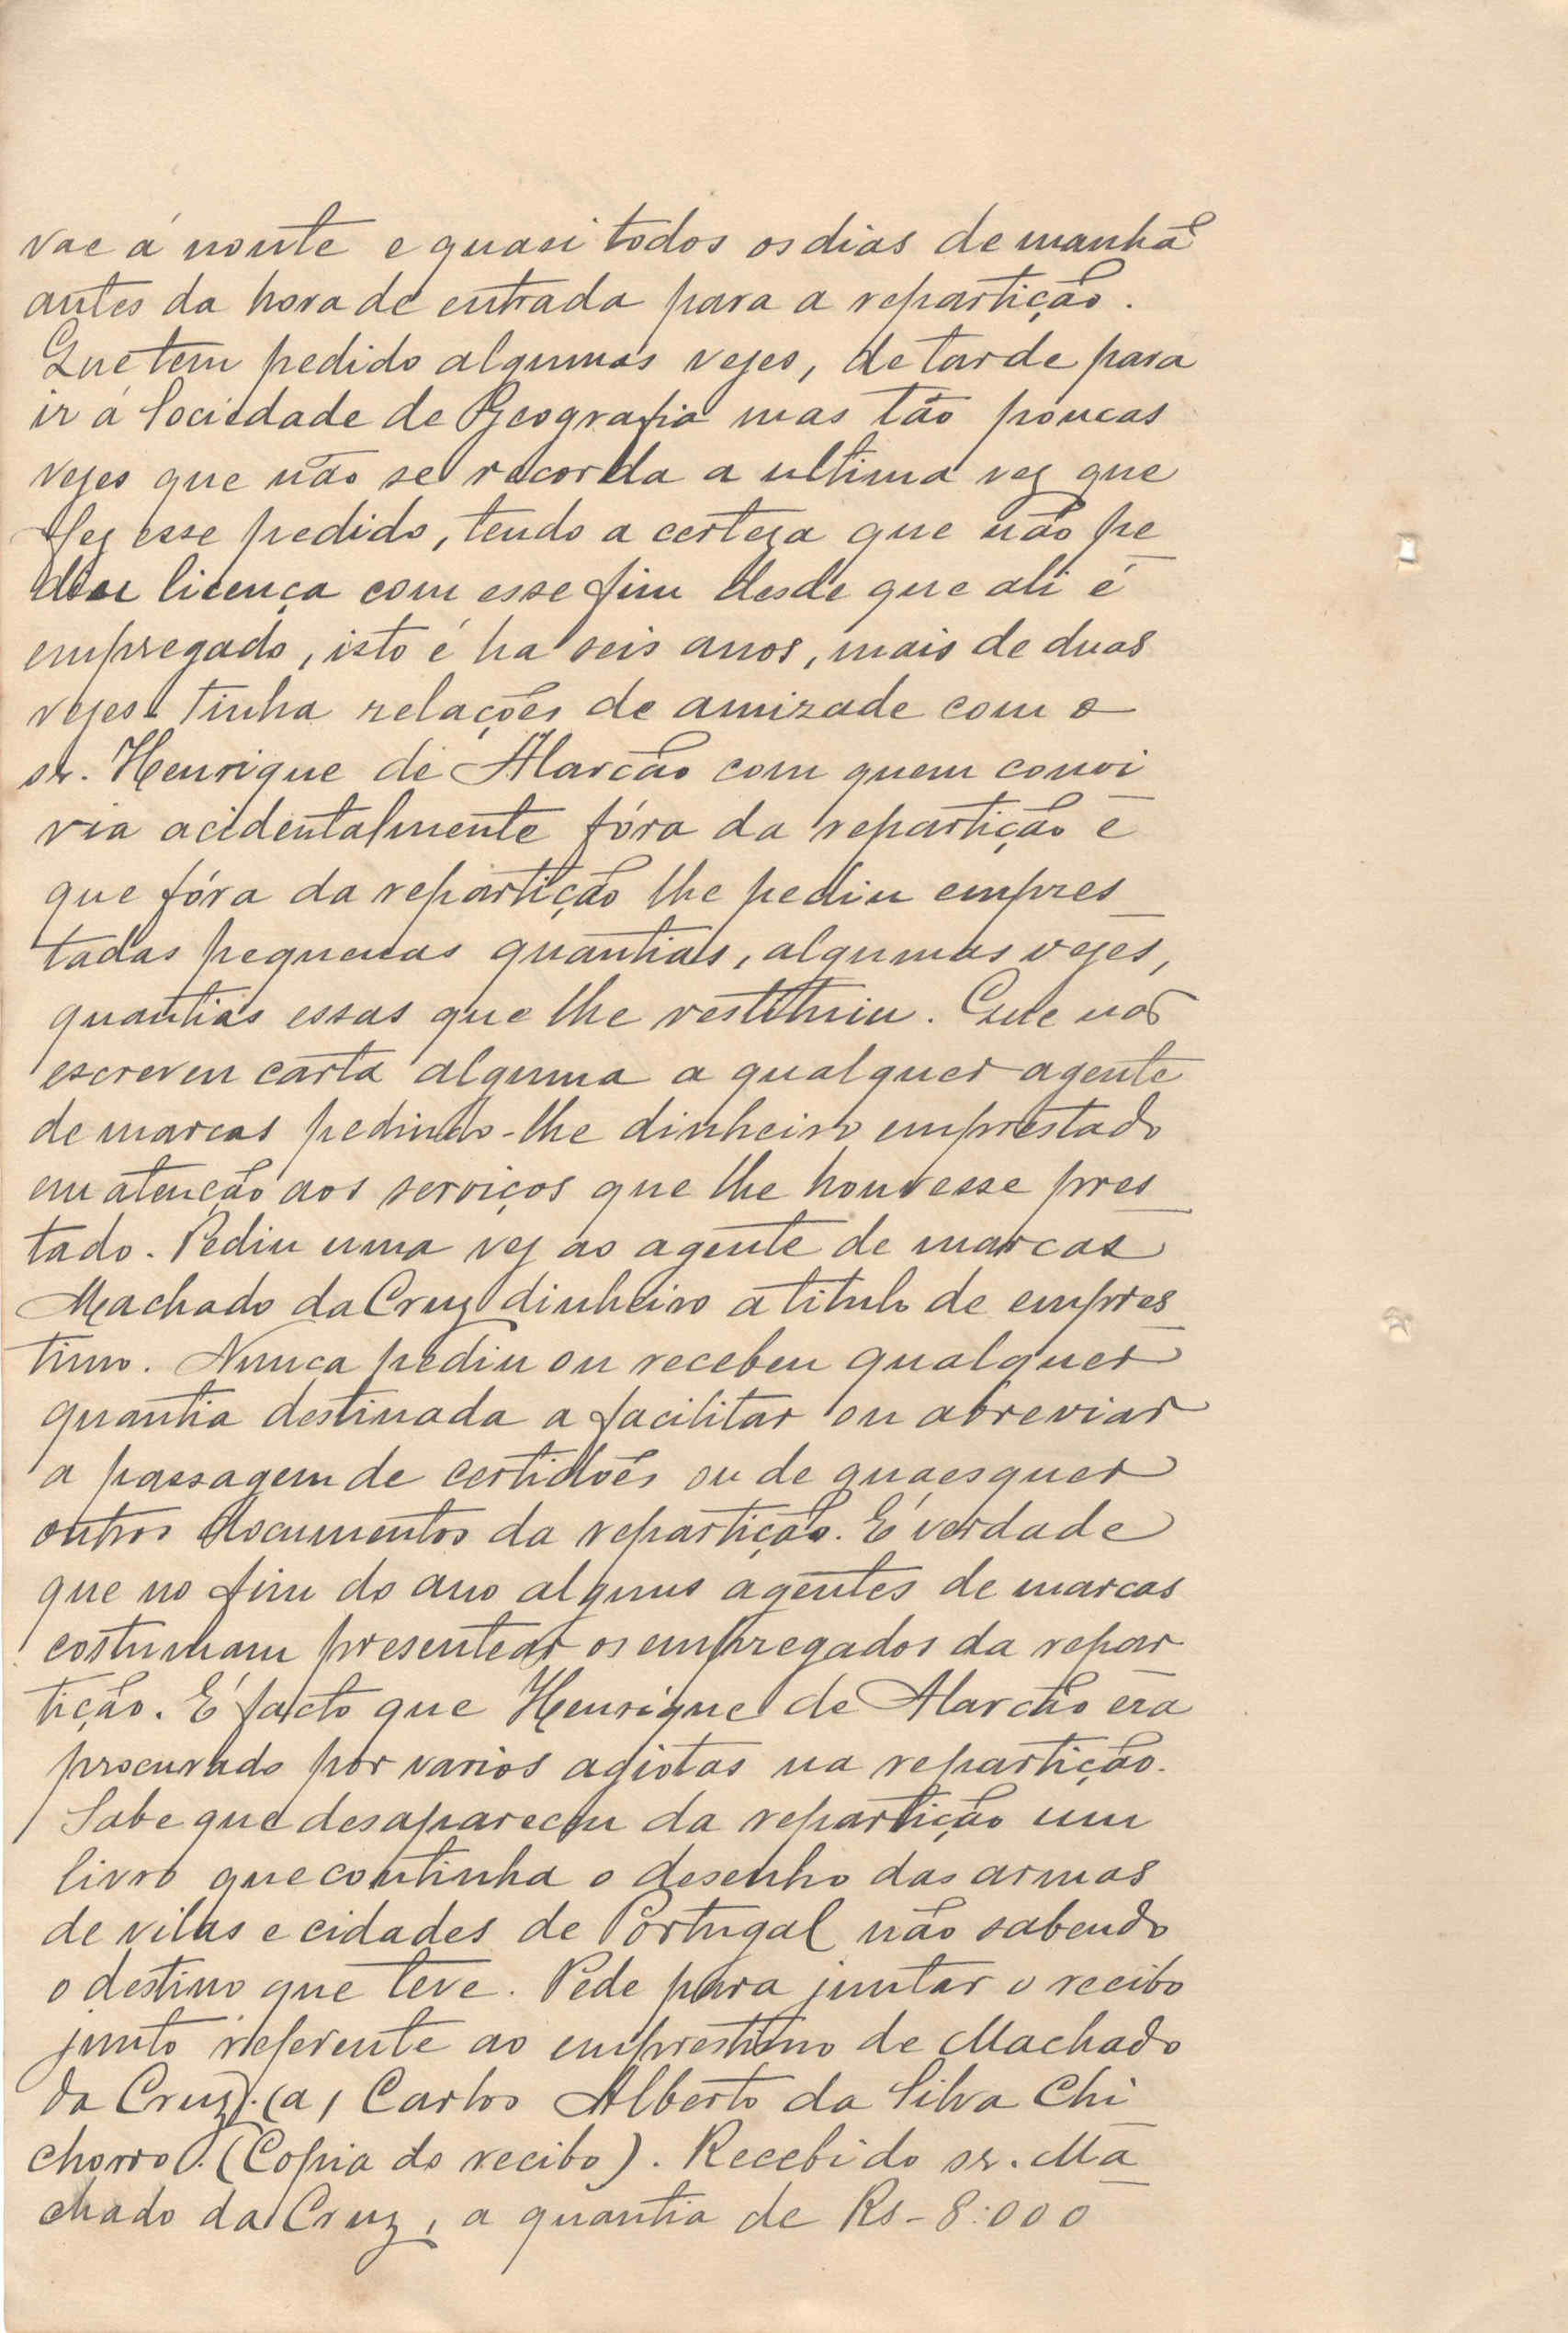 vae á noute e quasi todos os dias de manhã
antes da hora de entrada para a repartição.
Que tem pedido algumas vezes, de tarde para
ir á Sociedade de Geografia mas tão poucas
vezes que não se recorda a ultima vez que
fez esse pedido, tendo a certeza que não pe
diu licença com esse fim desde que ali é
empregado, isto é ha seis anos, mais de duas
vezes. Tinha relações de amizade com o
sr. Henrique de Alarcão com quem convi
via acidentalmente fóra da repartição e
que fóra da repartição lhe pediu empres
tadas pequenas quantias, algumas vezes,
quantias essas que lhe restituiu. Que não
escreveu carta alguma a qualquer agente
de marcas pedindo-lhe dinheiro emprestado
em atenção aos serviços que lhe houvesse pres
tado. Pediu uma vez ao agente de marcas
Machado da Cruz dinheiro a titulo de empres
timo. Nunca pediu ou recebeu qualquer
quantia destinada a facilitar ou abreviar
a passagem de certidões ou de quaesquer
outros documentos da repartição. É verdade
que no fim do ano alguns agentes de marcas
costumam presentear os empregados da repar
tição. É facto que Henrique de Alarcão era
procurado por varios agiotas na repartição.
Sabe que desapareceu da repartição um
livro que continha o desenho das armas
de vilas e cidades de Portugal não sabendo
o destino que teve. Pede para juntar o recibo
junto referente ao emprestimo de Machado
da Cruz). (a) Carlos Alberto da Silva Chi
chorro). (Copia do recibo). Recebi do sr. Ma
chado da Cruz, a quantia de Rs- 8:000